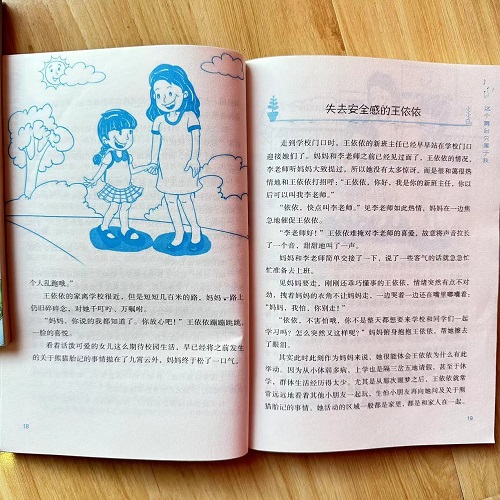 个人乱跑哦。”
王依依的家离学校很近，但是短短几百米的路，妈妈一路上
仍旧碎碎念，对她千叮咛、万嘱咐。
“妈妈，你说的我都知道了。你放心吧！”王依依蹦蹦跳跳，
一脸的喜悦。
看着活泼可爱的女儿这么期待校园生活，早已经将之前发生
的关于熊猫胎记的事情抛在了九霄云外，妈妈终于松了一口气。
18
失去安全感的王依依
走到学校门口时，王依依的新班主任已经早早站在学校门口
迎接她们了。妈妈和李老师之前已经见过面了，王依依的情况，
李老师听妈妈大致提过，所以她没有太多惊讶，而是很和蔼很热
情地和王依依打招呼：“王依依，你好，我是你的新班主任，你以
后可以叫我李老师。”
“依依，快点叫李老师。”见李老师如此热情，妈妈在一边焦
急地催促王依依。
“李老师好！”王依依难掩对李老师的喜爱，故意将声音拉长
了一个音，甜甜地叫了一声。
妈妈和李老师简单交接了一下，说了一些客气的话就急急忙
忙准备去上班。
见妈妈要走，刚刚还乖巧懂事的王依依，情绪突然有点不对
劲，拽着妈妈的衣角不让妈妈走，一边哭着一边还在嘴里嘟囔着：
“妈妈，我怕，你别走！”
“依依，不害怕哦，你不是整天都想要来学校和同学们一起
学习吗？怎么突然又这样呢？”妈妈俯身抱抱王依依，帮她擦去
了眼泪。
其实此时此刻作为妈妈来说，她很能体会王依依为什么有此
举动。因为从小体弱多病，上学也是隔三岔五地请假，甚至于休
学，群体生活经历得太少。尤其是从那次噩梦之后，王依依就常
常远远地看着其他小朋友一起玩，生怕小朋友再向她问及关于熊
猫胎记的事情。她活动的区域一般都是家里，都是和家人在一起。
19